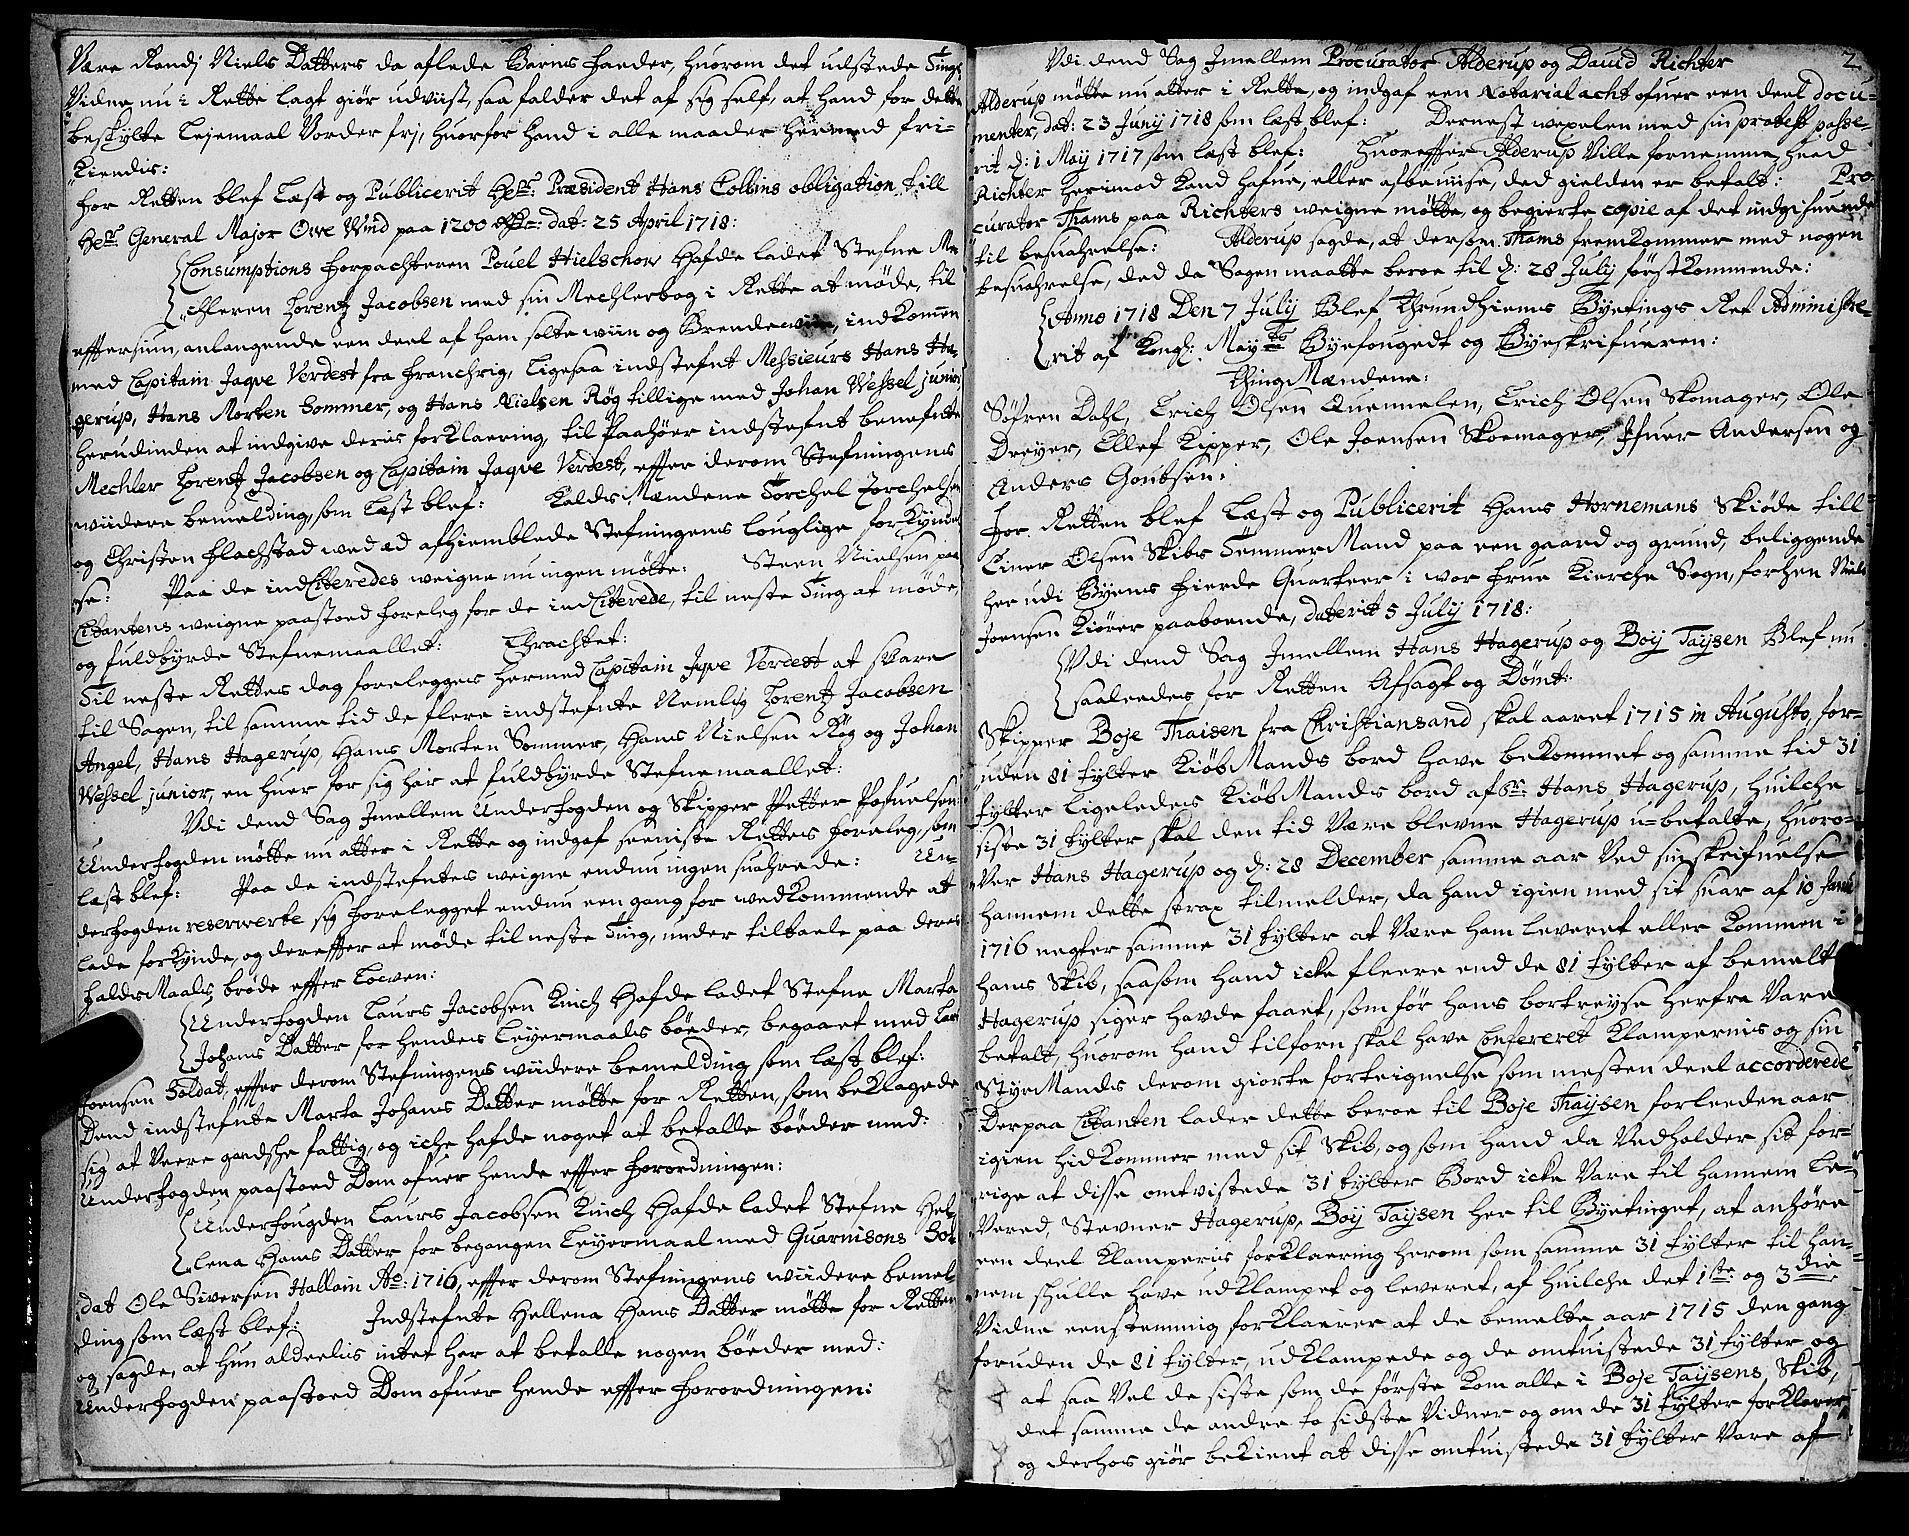 Være Randj Niels Datters da aflede Barns Faeder, huorom det udstede Tings
Vidne nu i Rette lagt giør udviist, saa falder det af sig self, at hand for dette
beskylte Lejemaal Vorder frj, huorfor hand i alle maader hermed fri-
Kiendis:
For Retten blef Læst og Publicerit Hr: Præsident Hans Collins obligation till
Hr: General Major Owe Wind paa 1200 Rdr: dat: 25 April 1718:
Consumptions Forpachteren Pouel Hielschow Hafde ladet Stefne Me-
chleren Lorentz Jacobsen med sin Mechlerbog i Rette at møde, til
efftersiun, anlangende een deel af ham solte wiin og Brendewiin, indkommen
med Capitain Jaqve Verdest fra Franchrig, Ligesaa indstefnt Messieurs Hans Ha-
gerup, Hans Morten Sommer, og Hans Nielsen Røg tillige med Johan Wessel junior
herudinden at indgive deris forklaering, til Paahøer indstefnt benefnte
Mechler Lorentz Jacobsen og Capitain Jaqve Verdest, effter derom Stefningens
wiidere bemelding, som Læst blef: KaldsMændene Torchel Torchelsen
og Christen Flachstad wed æd afhiemblede Stefningens louglige forkynd-
se: Paa de indCiteredes weigne nu ingen møtte: Steen Nielsen paa
Citantens weigne paastoed foreleg for de indCiterede, til neste Ting at møde,
og fuldbyrde Stefnemaallet: Thrachtet:
Til neste Rettes dag forelegges hermed Capitain Jqve Verdest at svare
til Sagen, til samme tid de flere indstefnte Nemlig Lorentz Jacobsen
Angel, Hans Hagerup, Hans Morten Sommer, Hans Nielsen Røg og Johan
Wessel junior, en huer for sig her at fuldbyrde Stefnemaallet:
Vdi dend Sag Jmellem Underfogden og Skipper Petter Pofuelsen
Underfogden møtte nu atter i Rette og indgaf seeniste Rettes foreleg, som
læst blef: Paa de indstefntes weigne endnu ingen suahrede: Un-
derfogden reserwerte sig forelegget endnu een gang for wedkommende at
lade forkynde, og dereffter at møde til neste Ting, under tiltaele paa deris
FaldsMaals brøde effter Lowen:
Underfogden Laurs Jacobsen Kinch Hafde ladet Stefne Marta
Johans Datter for hendes Leyermaals bøeder, begaaet med Lars
Joensen Soldat, effter derom Stefningens wiidere bemelding som læst blef:
Dend indstefnte Marta Johans Datter møtte for Retten, som beklagede
sig at Veere gandshe fattig, og iche hafde noget at betalle bøeder med:
Underfogden paastoed Dom ofuer hende effter Forordningen:
Underfougden Laurs Jacobsen Kinch Hafde ladet Stefne Hel-
lena Hans Datter for begangen Leyermaal med Quarnisons Sol-
dat Ole Siversen Hallain Ao: 1716, effter derom Stefningens wiidere bemel-
ding som læst blef: Indstefnte Hellena Hans Datter møtte for Retten
og sagde, at hun aldeelis intet her at betalle nogen bøeder med:
Underfogden paastoed Dom ofuer hende effter Forordningen:
2
Vdi dend Sag Jmellem Procurator Alderup og Dauid Richter
Alderup møtte nu atter i Rette, og indgaf een Notarial acht ofuer een deel docu-
menter, dat: 23 Junij 1718 som læst blef: Dernest wexelen med sin protest passe-
rit d: 1 Maij 1717 som læst blef: Huoreffter Alderup Ville fornemme, huad
Richter herimod Kand hafue, eller afbeviise, ded gielden er betalt: Pro-
curator Thams paa Richters weigne møtte, og begierte copie af det indgifnende
til besuahrelse: Alderup sagde, at dersom Thams fremkommer med nogen
besuahrelse, ded da Sagen maatte beroe til d: 28 July førstkommende:
Anno 1718 Den 7 Julij Blef Thrundhiems Byetings Ret Administre-
rit af Kongl: Mayts Byefougedt og Byeskrifueren:
Thing Mændene:
Søfren Dahl, Erich Olsen Quennelen, Erich Olsen Skomager, Ole
Dreyer, Ellef Kipper, Ole Joensen Skoemager, Ifuer Andersen og
Anders Goutsen:
For Retten blef Læst og Publicerit Hans Hornemans Skiøde till
Einer Olsen Skibs TømmerMand paa een gaard og grund, beliggende
her udi Byens Fierde Quarteer i wor Frue Kierche Sogn, forhen Niels
Joensen Kiører paaboende, daterit 5 Julij 1718:
Vdi dend Sag Jmellem Hans Hagerup og Boij Taysen Blef nu
saaleedes for Retten Afsagt og Dømt:
Skipper Boje Thaisen fra Christiansand skal aaret 1715 in Augusto, for-
uden 81 tylter KiøbMands bord have bekommet og samme tid 31
tylter ligeledes KiøbMands bord af Sr: Hans Hagerup, huilche
siste 31 tylter skal den tid Være blevne Hagerup u-betalte, huoro-
Ver Hans Hagerup og d: 28 December samme aar Ved sin skrifuelse
hannem dette strax tilmelder, da hand igien med sit suar af 10 Janr
1716 negter samme 31 tylter at Være ham leveret eller kommen i
hans Skib, saasom hand icke fleere end de 81 tylter af bemelt
Hagerup siger havde faaet, som før hans bortreyse herfra Vare
betalt, huorom hand tilforn skal have Confereret Klampernis og sin
StyrMands derom giorte forteignelse som mesten deel accorderede
Derpaa Citanten lader dette beroe til Boje Thaysen forleeden aar
igien hidkommer med sit Skib, og som hand da Vedholder sit for-
rige at disse omtvistede 31 tylter Bord icke Vare til hannem Le-
vered, Stevner Hagerup, Boij Taysen her til Byetinget, at anhøre
een deel Klamperis forklaering herom som samme 31 tylter til han-
nem schulle have udklampet og leveret, af huilche det 1ste og 3die
Vidne eenstemmig forklaerer at de bemelte aar 1715 den gang
foruden de 81 tylter, udklampede og de omtuistede 31 tylter og
at saa Vel de siste som de første kom alle i Boje Taysens Skib,
det samme de andre to sidste Vidner og om de 31 tylter forklarer
og derhos giør bekient at disse omtuistede 31 tylter Vare af